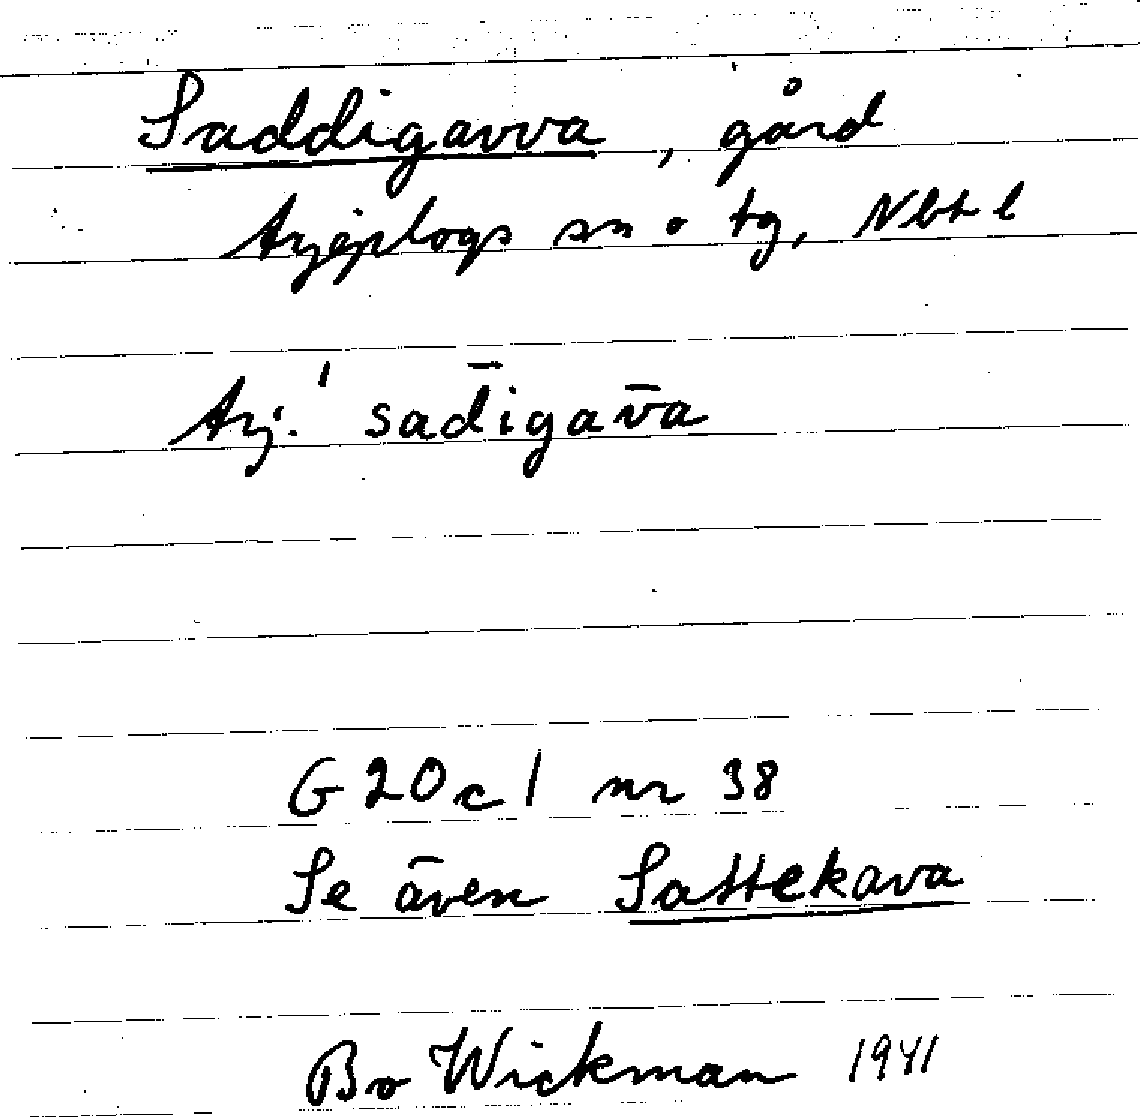 Saddigavva, gård
Arjeplogs sn o tg, Nbt l
Arj. ˈsad̄igav̄a
G 20 c 1 nr 38
Se även Sattekava
Bo Wickman 1941